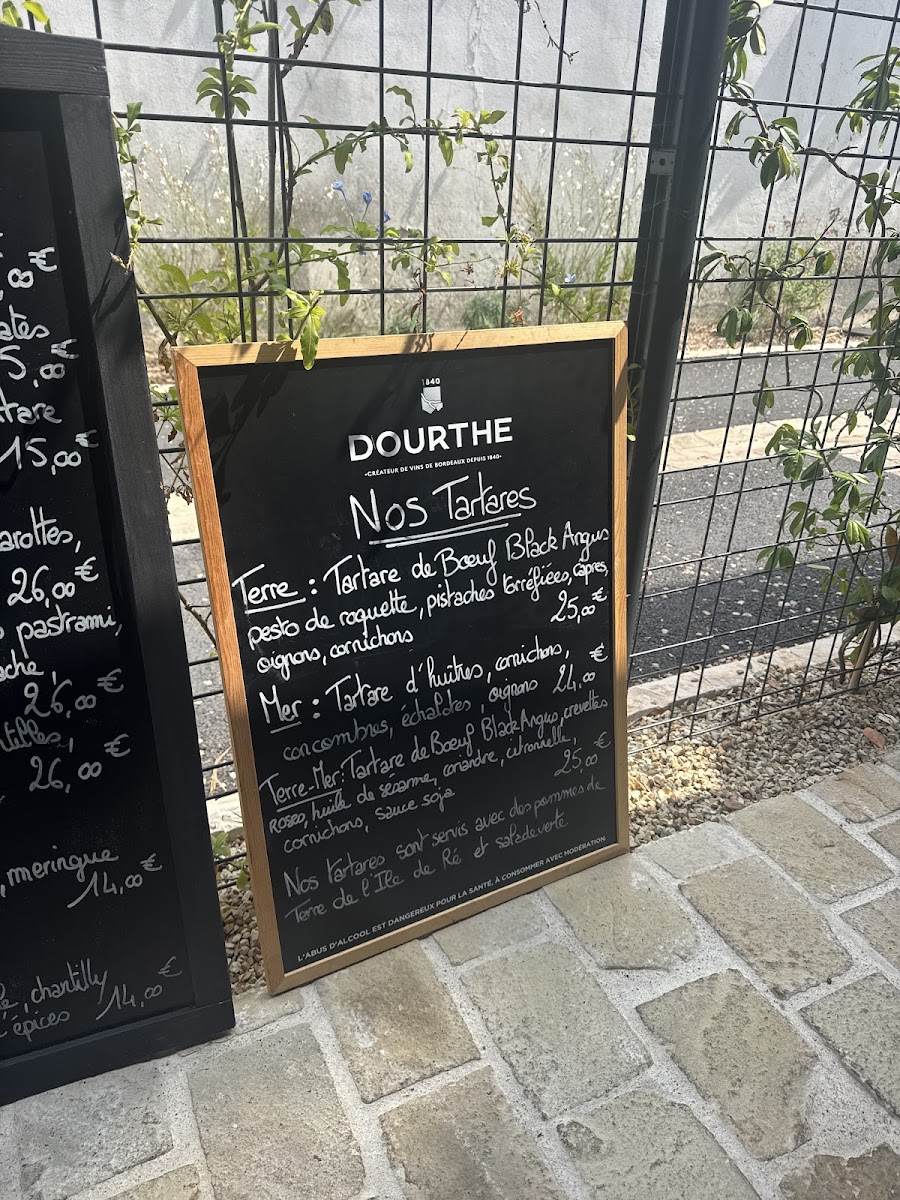 8€
5,00€
15,00€
26,00€
pastrami,
26,00€
26,00€
, meringue
14,00€
, chantilly
épices 14,00€
1840
DOURTHE
•CRÉATEUR DE VINS DE BORDEAUX DEPUIS 1840•
Nos Tartares
Terre : Tartare de Bœuf Black Angus
pesto de roquette, pistaches torréfiées, câpres,
oignons, cornichons 25,00€
Mer : Tartare d'huîtres, cornichons,
concombres, échalotes, oignons 24,00€
Terre-Mer : Tartare de Boeuf Black Angus, crevettes
Roses, huile de sésame, coriandre, citronnelle,
cornichons, sauce soja 25,00€
Nos tartares sont servis avec des pommes de
Terre de l'Ile de Ré et salade verte
L'ABUS D'ALCOOL EST DANGEREUX POUR LA SANTÉ, À CONSOMMER AVEC MODÉRATION.